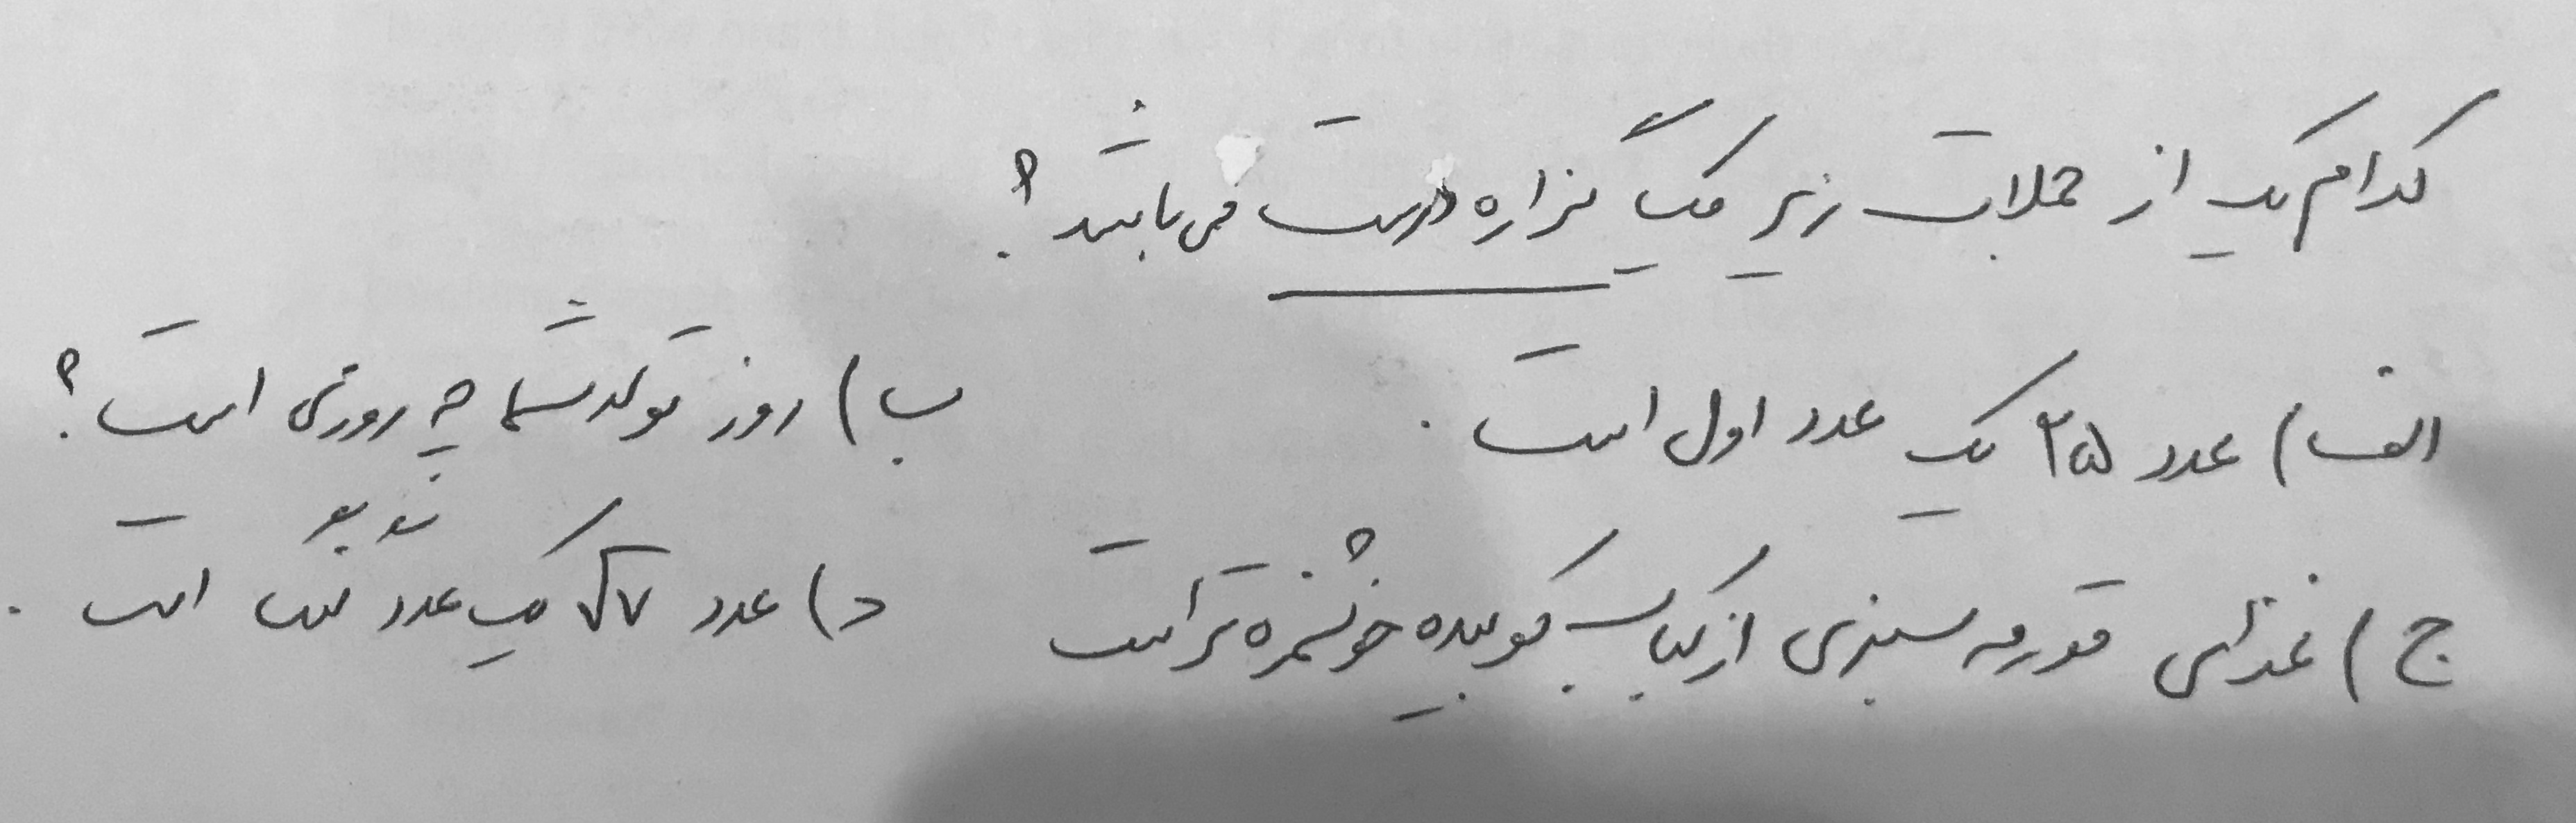 کدام یک از جملات زیر یک گزاره درست می باشد؟
الف) عدد ۲۵ یک عدد اول است. ب) روز تولد شما چه روزی است؟
ج) غذای قورمه سبزی از کباب کوبیده خوشمزه تر است د) عدد √۷ یک عدد است.